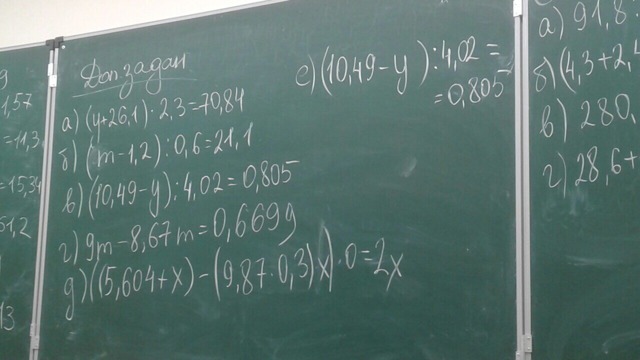 Доп задан
а) (y+26,1) · 2,3 = 70,84
б) (m-1,2) : 0,6 = 21,1
в) (10,49-y) : 4,02 = 0,805
г) 9m - 8,67m = 0,6699
д) ((5,604+x) - (9,87·0,3)x) · 0 = 2x
е) (10,49-y) : 4,02 =
= 0,805
1,57
= 11,3
= 15,34
51,2
13
а) 91,8
б) (4,3+2,4
в) 280,
г) 28,6+